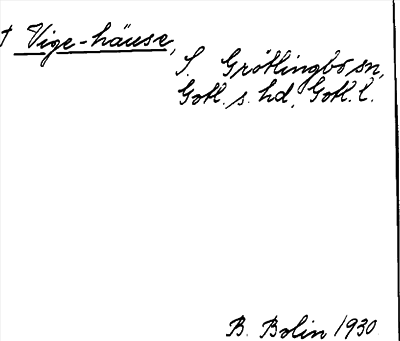 † Vige-häuse,
S. Grötlingbo sn,
Gotl. s. hd, Gotl. l.
B. Bolin 1930